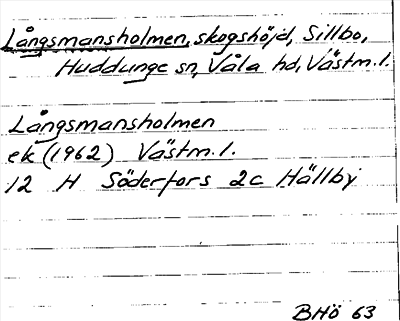 Långsmansholmen, skogshöjd, Sillbo,
Huddunge sn, Våla hd, Västm.l.
Långsmansholmen
ek (1962) Västm.l.
12 H Söderfors 2c Hällby
BHö 63